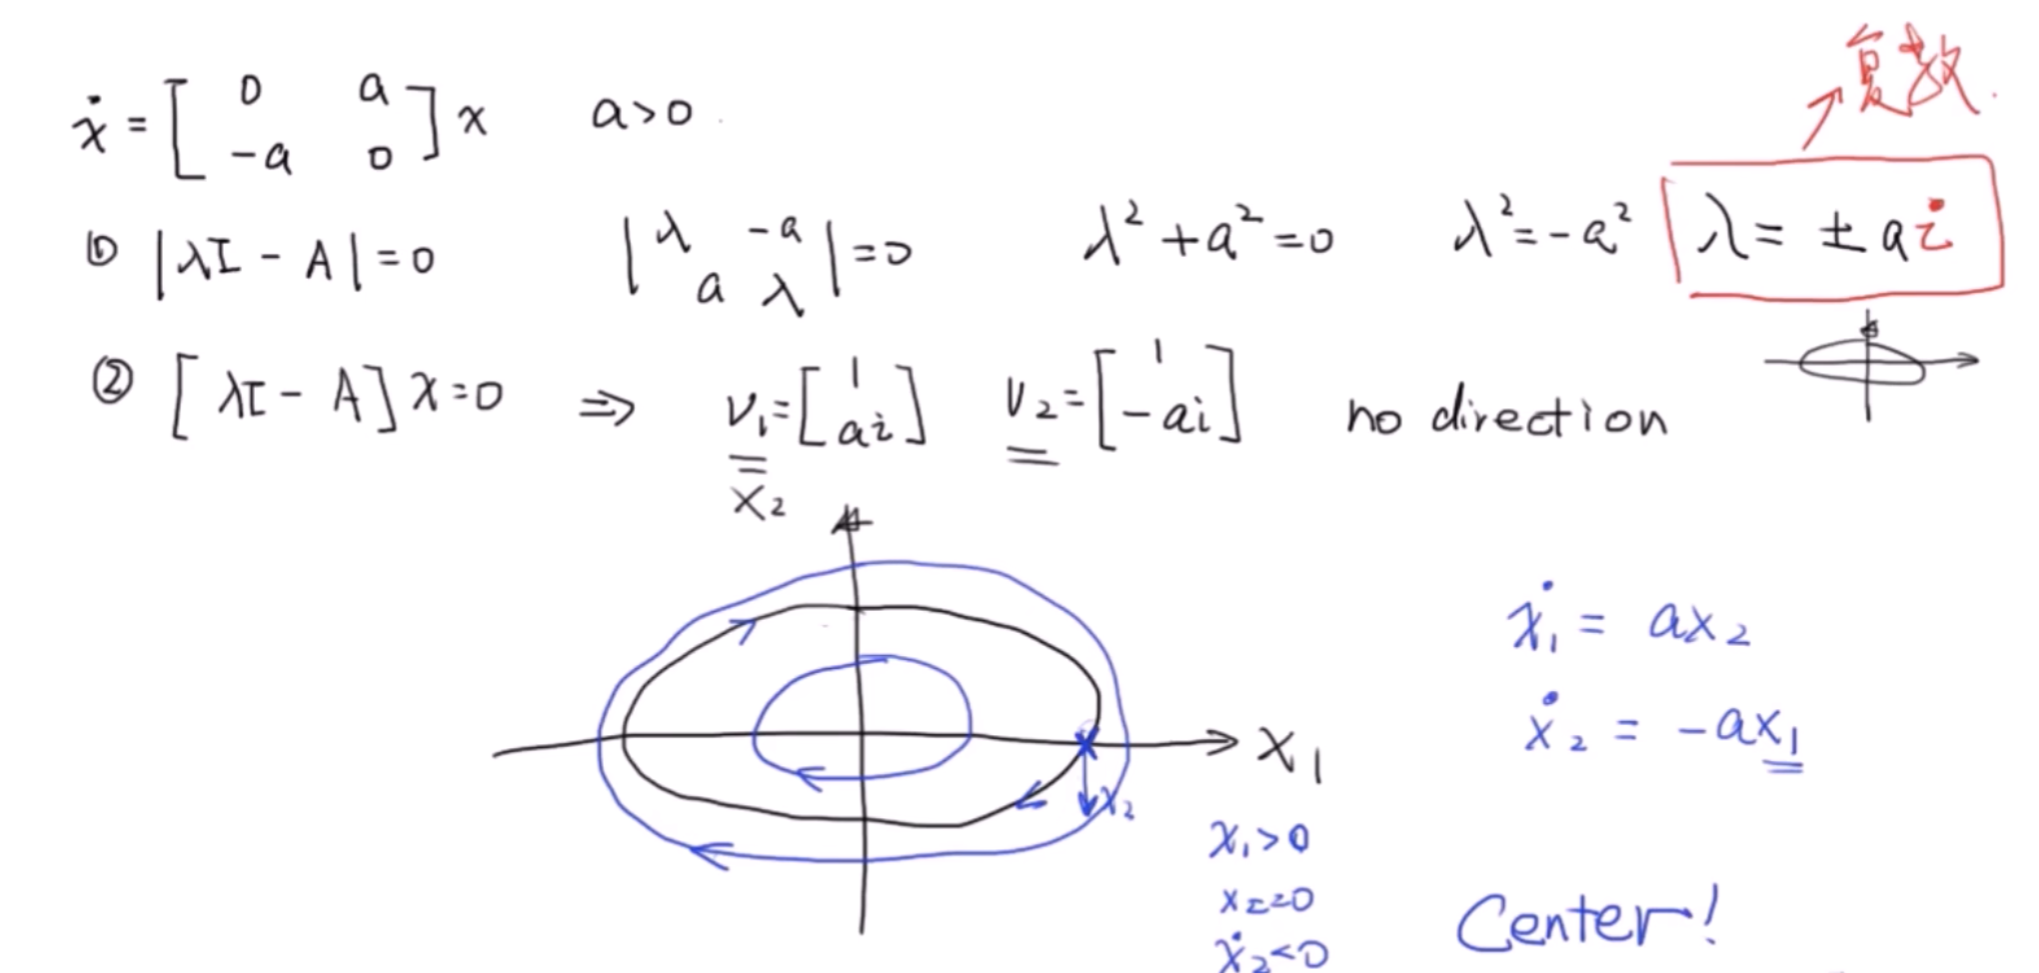 复数.
ẋ = [0 a; -a 0] x  a>0
① |λI - A| = 0  |λ -a; a λ| = 0  λ² + a² = 0  λ² = -a²  λ = ± ai
② [λI - A] x = 0 ⇒ v₁ = [1; ai]  v₂ = [1; -ai]  no direction
x₂
ẋ₁ = ax₂
ẋ₂ = -ax₁
x₁
ẋ₂
x₁>0
x₂=0
ẋ₂<0
Center!